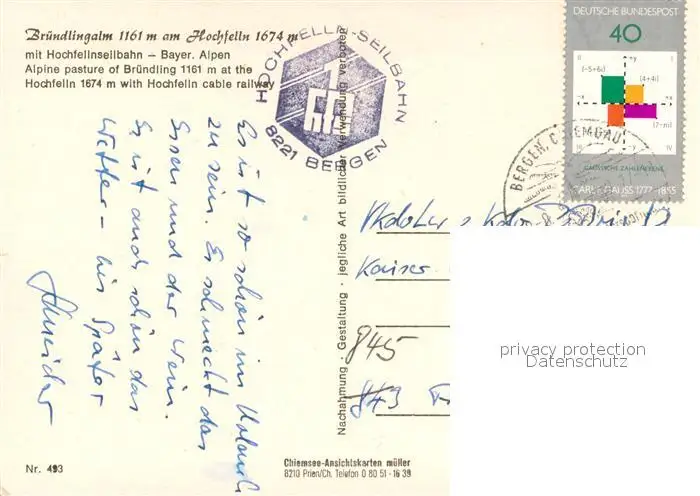 Bründlingalm 1161 m am Hochfelln 1674 m
mit Hochfellnseilbahn – Bayer. Alpen
Alpine pasture of Bründling 1161 m at the
Hochfelln 1674 m with Hochfelln cable railway
HOCHFELLN-SEILBAHN
8221 BERGEN
DEUTSCHE BUNDESPOST
40
II +y I
(-5+6i) (4+4i)
-x +x
(7-ni)
III -y IV
GAUSSSCHE ZAHLENEBENE
CARL F. GAUSS 1777-1855
BERGEN, CHIEMGAU
Es ist so schön im Urlaub
zu sein. Es schmeckt das
Essen und der Wein.
Es ist auch schön das
Wetter – bis Später
Schneider
Nachahmung · Gestaltung · jegliche Art bildlicher Verwendung verboten
Kaiser
845
843
privacy protection
Datenschutz
Nr. 493
Chiemsee-Ansichtskarten müller
8210 Prien/Ch. Telefon 0 80 51 - 16 39